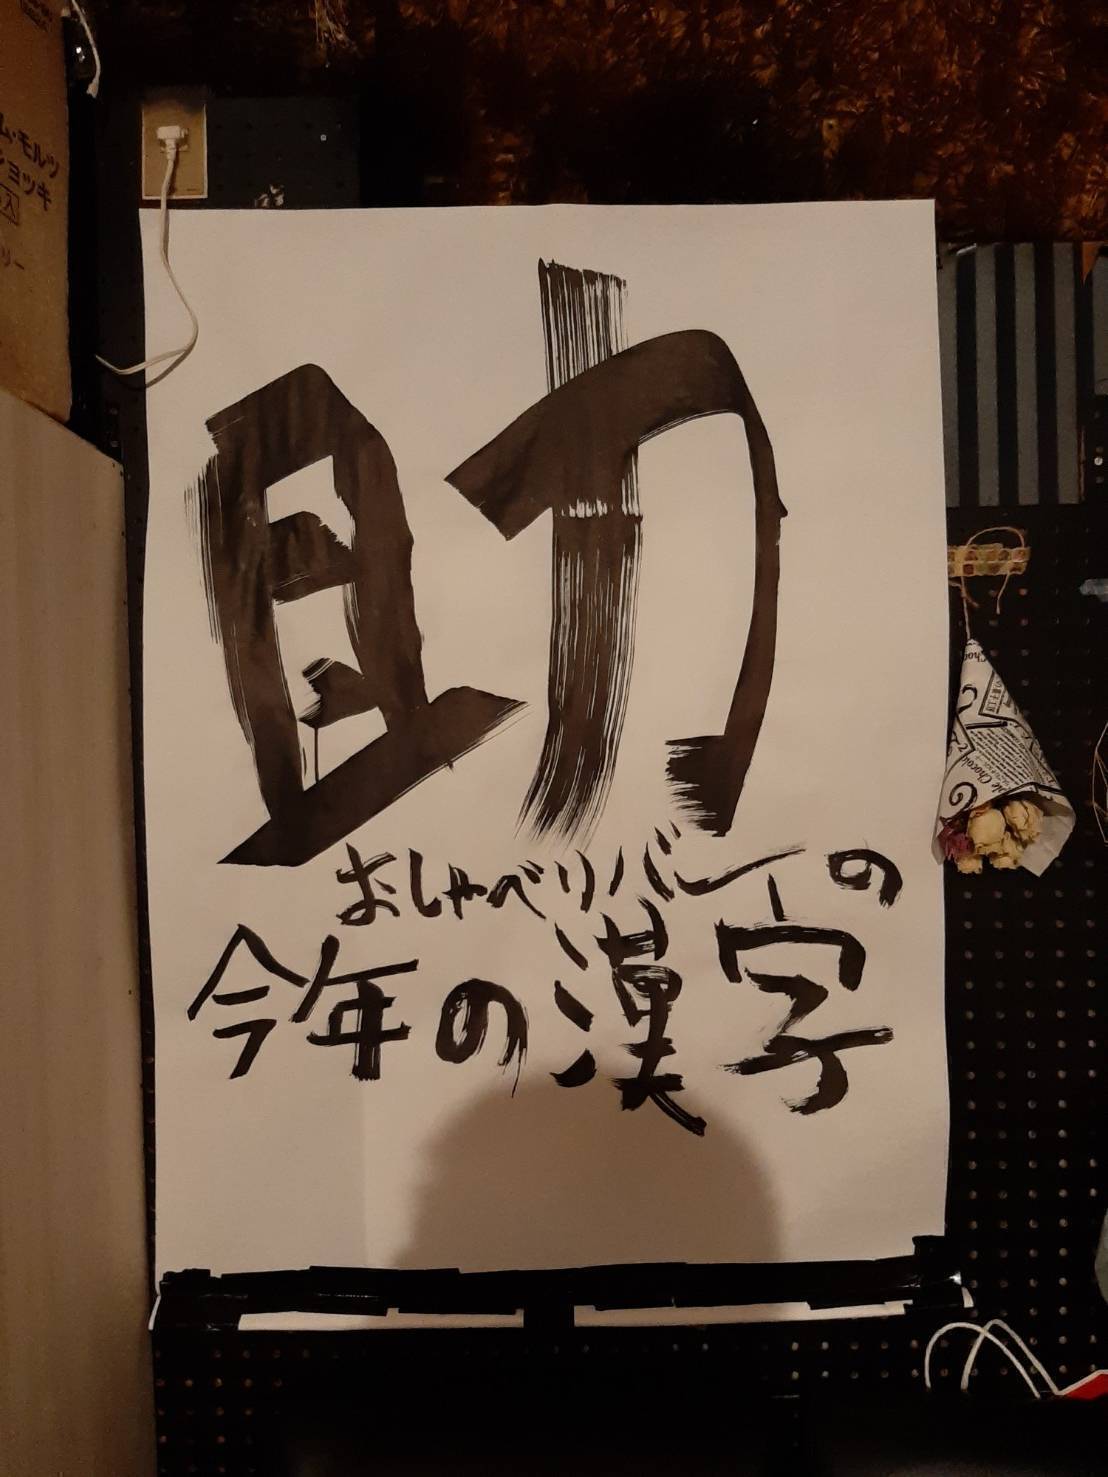 ム・モルツ
ジョッキ
入
リー
助
おしゃべりバーの
今年の漢字